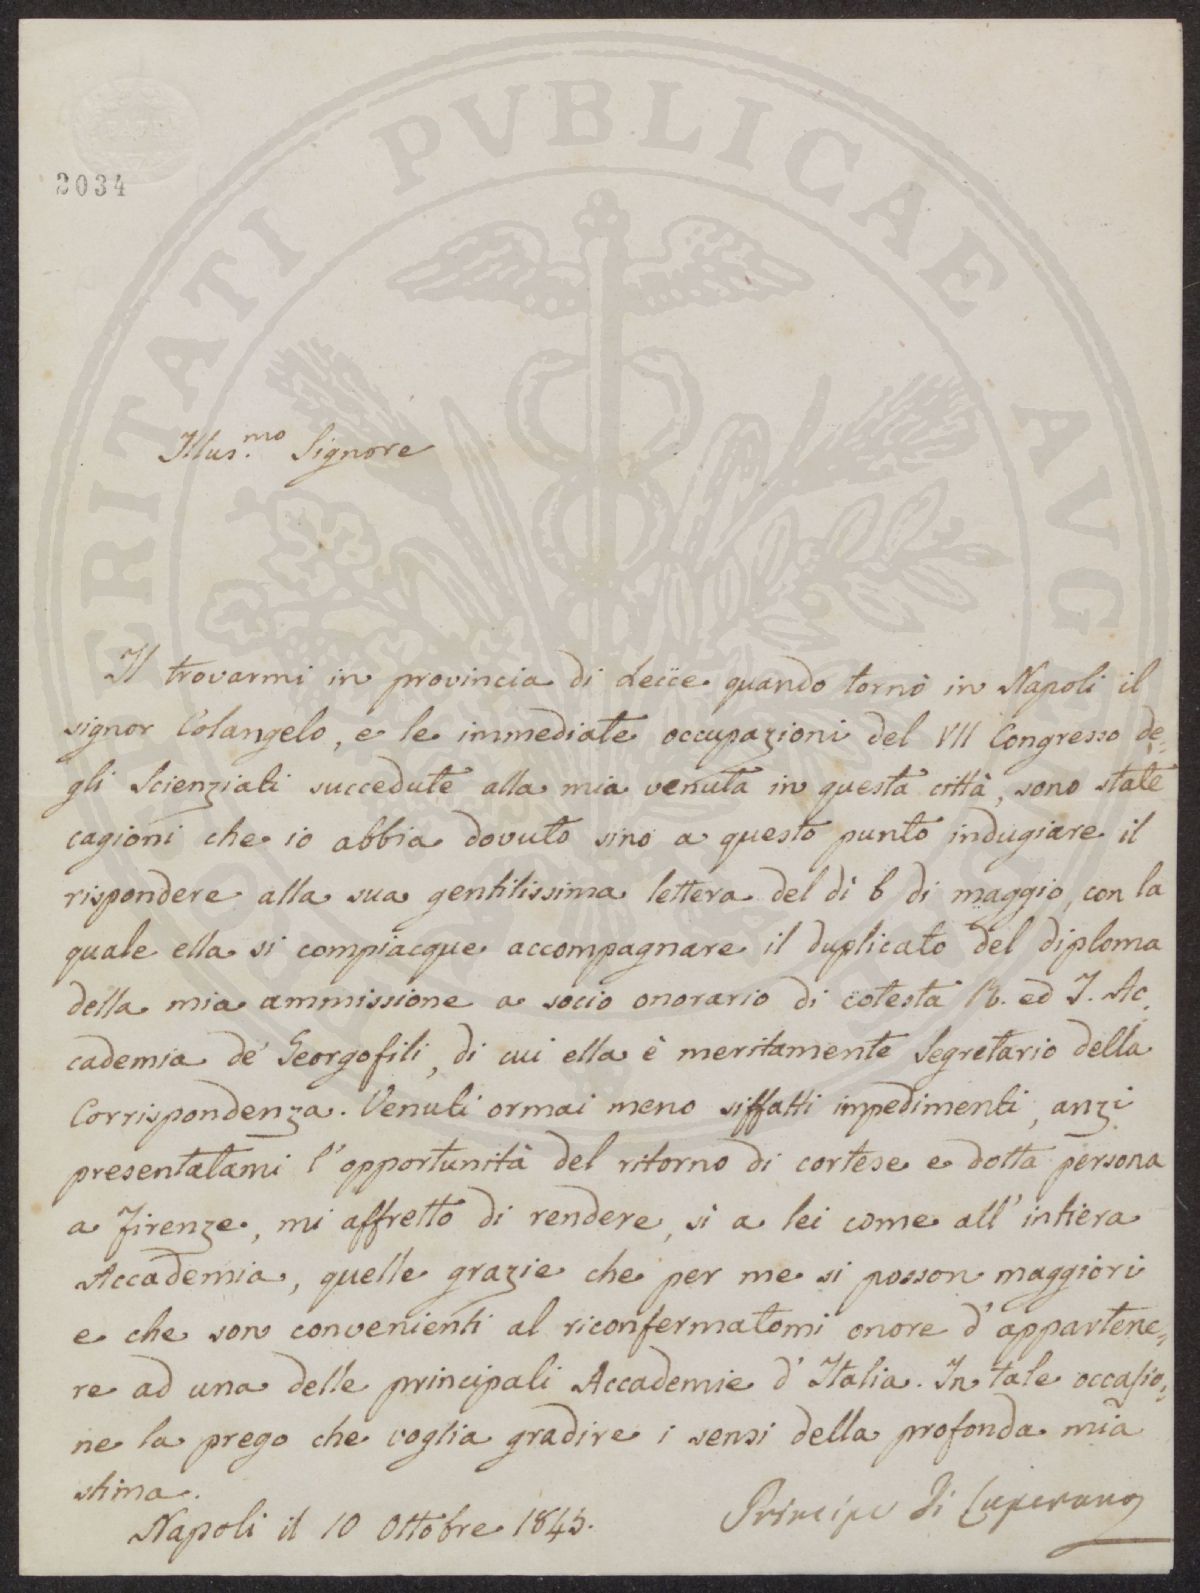 2034
Illus.mo Signore
Il trovarmi in provincia di Lecce quando tornò in Napoli il
signor Colangelo, e le immediate occupazioni del VII Congresso de=
gli Scienziati succedute alla mia venuta in questa città, sono state
cagioni che io abbia dovuto sino a questo punto indugiare il
rispondere alla sua gentilissima lettera del dì 6 di maggio, con la
quale ella si compiacque accompagnare il duplicato del diploma
della mia ammissione a socio onorario di cotesta R. ed I. Ac=
cademia de' Georgofili, di cui ella è meritamente Segretario della
Corrispondenza. Venuti ormai meno siffatti impedimenti, anzi
presentatami l'opportunità del ritorno di cortese e dotta persona
a Firenze, mi affretto di rendere, sì a lei come all'intiera
Accademia, quelle grazie che per me si posson maggiori
e che son convenienti al riconfermatomi onore d'appartene=
re ad una delle principali Accademie d'Italia. In tale occasio=
ne la prego che voglia gradire i sensi della profonda mia
stima.
Napoli il 10 Ottobre 1845.
Principe di Luperano